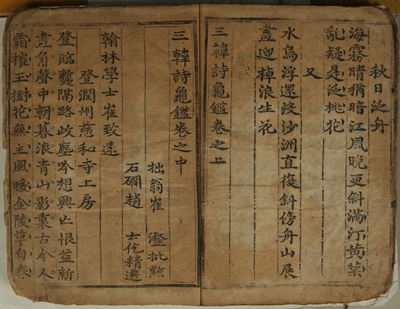 秋日泛舟
海霧晴猶暗江風晩更斜滿汀黃葉
亂疑是泛桃花
又
水鳥浮還沒沙洲直復斜傍舟山展
畫迎棹浪生花
三韓詩龜鑑卷之上
三韓詩龜鑑卷之中
拙翁崔 瀣批點
石磵趙 云仡精選
翰林學士崔致遠
登潤州慈和寺上房
登臨暫隔路岐塵吟想興亡恨益新
畫角聲中朝暮浪青山影裏古今人
霜摧玉樹花無主風暖金陵草自春